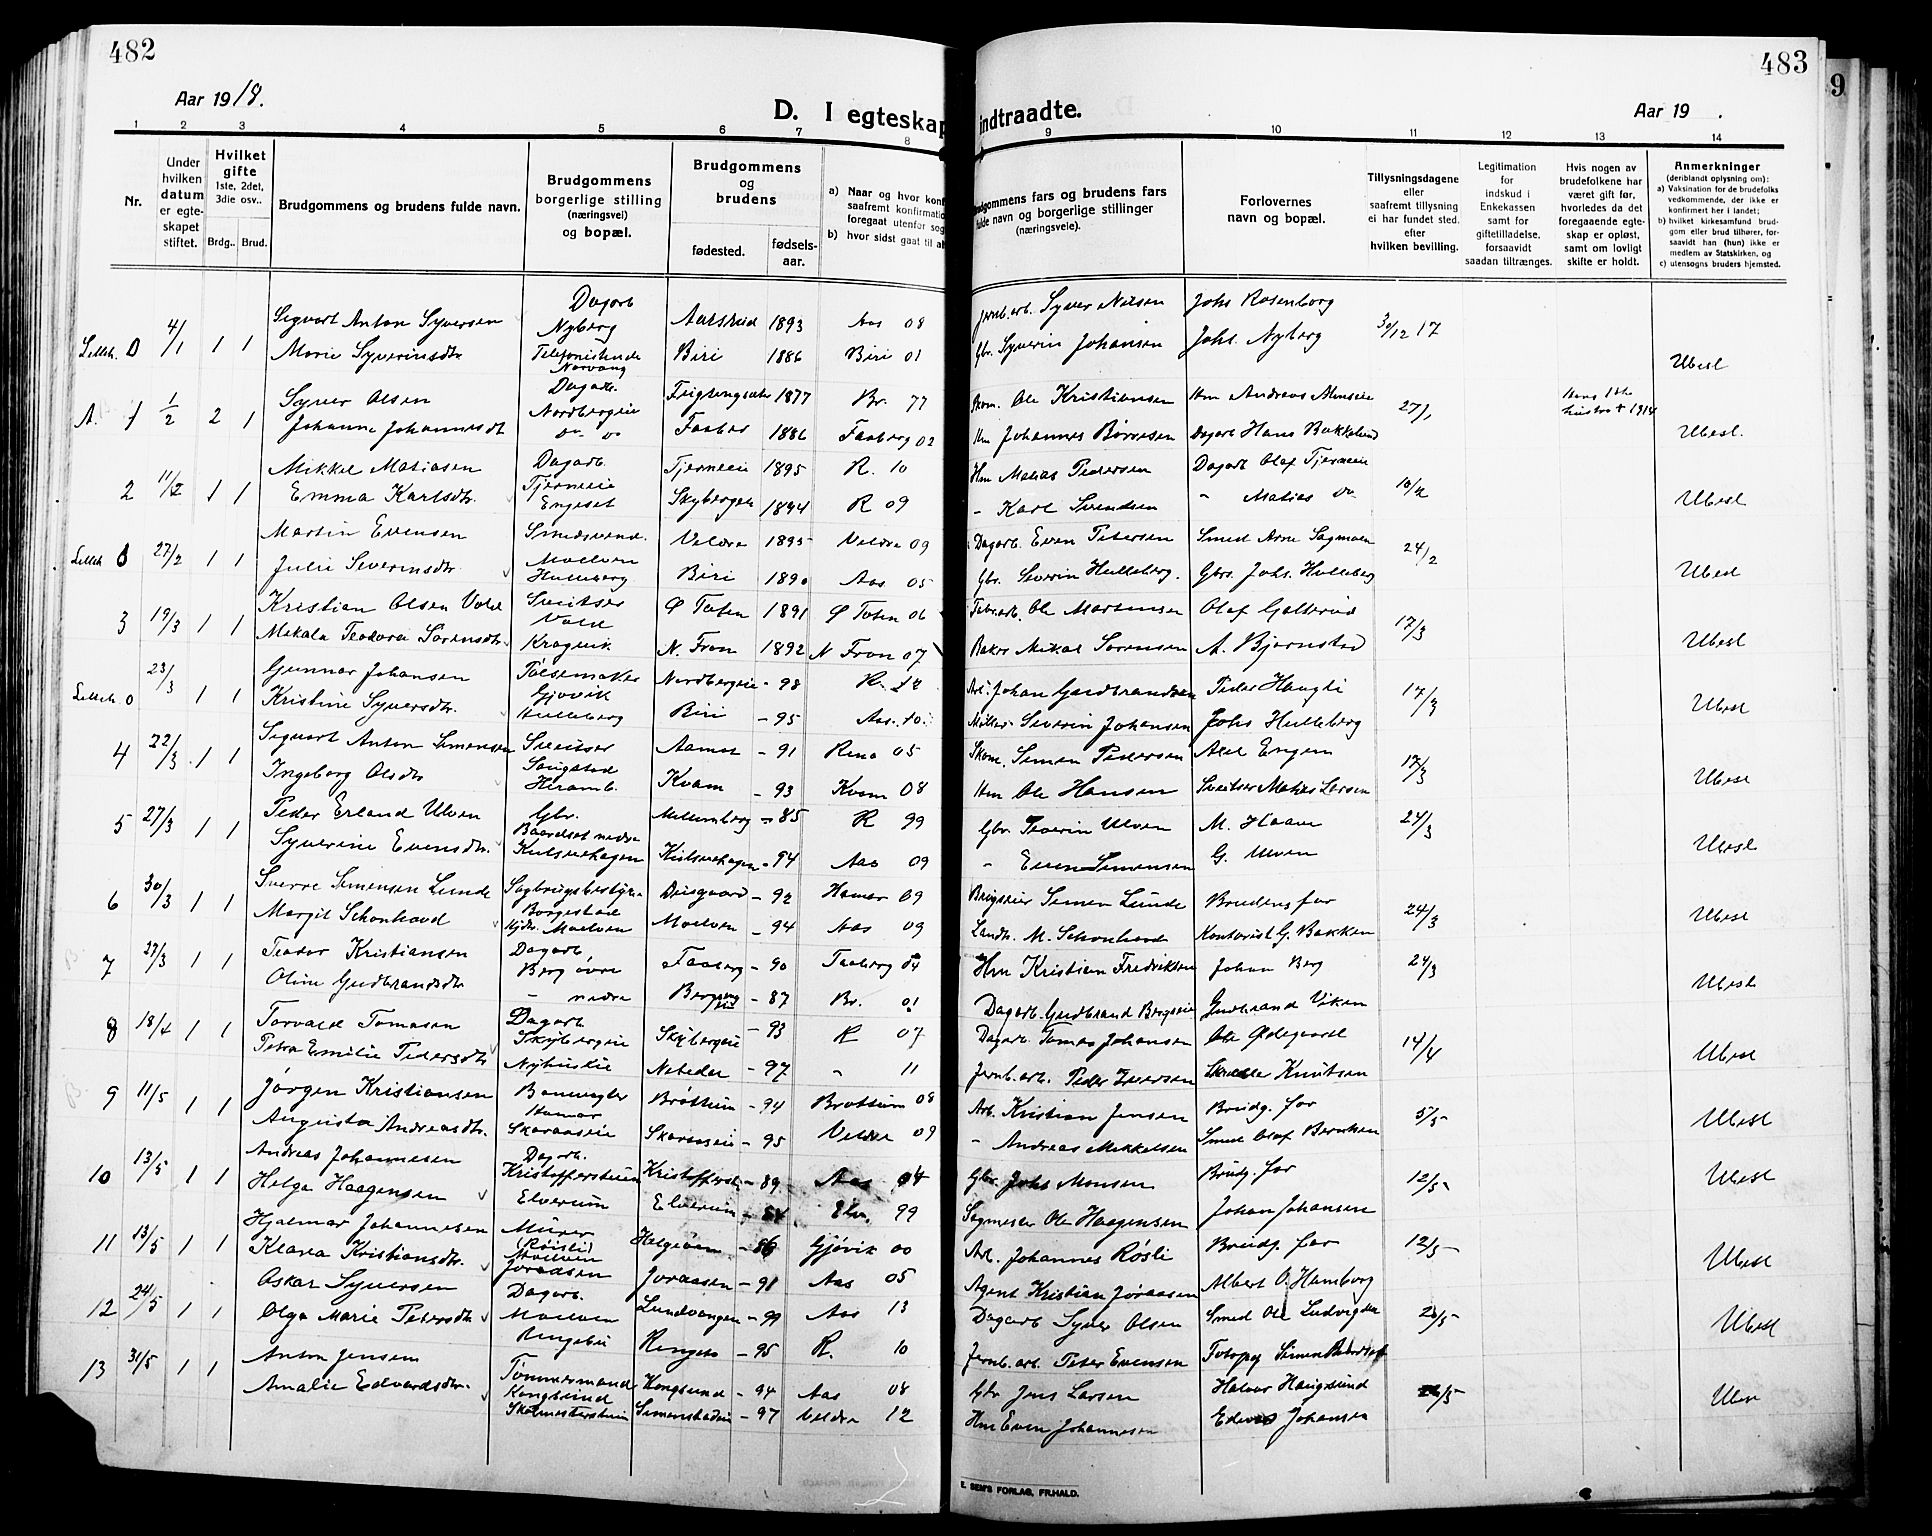 482
Aar 1918.
D. I egteskap
1 2 3 4 5 6 7 8
Nr.
Under hvilken datum er egteskapet stiftet.
Hvilket gifte 1ste, 2det, 3die osv..
Brdg.. Brud.
Brudgommens og brudens fulde navn.
Brudgommens borgerlige stilling (næringsvei) og bopæl.
Brudgommens og brudens
fødested. fødsels-aar.
a) Naar og hvor konf
saafremt konfirmatio
foregaat utenfor sog
b) hvor sidst gaat til al
Lilleh. 0 4/1 1 1 Sigvart Anton Syversen Dagarb. Nyberg Aarstad 1893 Aas 08
Marie Syverinsdtr. Telefonistinde Norvang Biri 1886 Biri 01
A. 1 1/2 2 1 Syver Olsen Dagarb. Nordbergeie 1877 Br. 77
Johanne Johannesdt Do. Do Faaberg 1886 Faaberg 02
2 11/2 1 1 Mikkel Matiasen Dagarb. Tjerneeie Tjerneeie 1895 R. 10
Emma Karlsdtr. Engeset Skybergeie 1894 R 09
Lilleh 0 27/2 1 1 Martin Evensen Smedsvend. Moelven Veldre 1895 Veldre 09
Julie Severinsdtr. Hulleberg Biri 1890 Aas 05
3 19/3 1 1 Kristian Olsen Vold Sveitser Vold Ø Toten 1891 Ø Toten 06
Mikala Teodora Sørensdtr. Kragvik N. Fron 1892 N Fron 07
Lilleh 0 23/3 1 1 Gunnar Johansen Pølsemaker Gjøvik Nordbergeie - 98 R. 12
Kristine Syversdtr. Hulleberg Biri - 95 Aas. 10.
4 22/3 1 1 Sigvart Anton Simensen Sveitser Saugstad Aamot - 91 Rena 05
Ingeborg Olsdtr Heramb. Kvam - 93 Kvam 08
5 27/3 1 1 Peder Erland Ulven Gbr. Baardset nedre Mellemberg - 85 R 99
Syverine Evensdtr. Kulsvehagen Kulsvehagen - 94 Aas 09
6 30/3 1 1 Sverre Simensen Lunde Sagbrugsbestyrer Borgestad Diisgaard - 92 Hamar 09
Margit Schonhovd Hjdtr. Moelven Moelven - 94 Aas 09
7 27/3 1 1 Teodor Kristiansen Dagarb Berg øvre Faaberg - 90 Faaberg 04
Oline Gudbrandsdtr - nedre Bergseng eie - 87 Br. 01
8 18/4 1 1 Torvald Tomasen Dagarb Skybergeie Skybergeie - 93 R 07
Petra Emilie Pedersdtr Nyhuseie Nebeder - 97 - 11
9 11/5 1 1 Jørgen Kristiansen Banevogter Hamar Brøttum - 94 Brøttum 08
Augusta Andreasdtr. Skaraaseie Skaraaseie - 95 Veldre 09
10 13/5 1 1 Andreas Johannesen Dagarb. Kristofferstuen Kristofferst. - 89 Aas 04
Helga Haagensen Elverum Elverum - 84 Elv. 99
11 13/5 1 1 Hjalmar Johannesen Murer (Røisli) Moelven Helgøen - 86 Gjøvik 00
Klara Kristiansdtr. Joraasen Joraasen - 91 Aas 05
12 24/5 1 1 Oskar Syversen Dagarb. Moelven Lundvangen - 99 Aas 13
Olga Marie Petersdtr Ringebu Ringebu - 95 R. 10
13 31/5 1 1 Anton Jensen Tømmermand Kongsund Kongsund - 94 Aas 08
Amalie Edvardsdtr. Skolmesterstuen Simenstadeie - 97 Veldre 12
483
indtraadte.
Aar 19 .
9 10 11 12 13 14
Brudgommens fars og brudens fars fulde navn og borgerlige stillinger (næringsveie).
Forlovernes navn og bopæl.
Tillysningsdagene eller saafremt tillysning ei har fundet sted. efter hvilken bevilling.
Legitimation for indskud i Enkekassen samt for giftetilladelse. forsaavidt saadan tiltrænges.
Hvis nogen av brudefolkene har været gift før, hvorledes da det foregaaende egteskap er opløst, samt om lovligt skifte er holdt.
Anmerkninger
(deriblandt oplysning om):
a) Vaksination for de brudefolks vedkommende, der ikke er konfirmert her i landet;
b) hvilket kirkesamfund brudgom eller brud tilhører, forsaavidt han (hun) ikke er medlem av Statskirken, og
c) utensogns bruders hjemsted.
Jernb.arb. Syver Nilsen Johs Rosenborg 30/12 17
Gbr. Syverin Johansen Johs. Nyberg Ubesl
Skom. Ole Kristiansen Hm Andreas Almseie 27/1 Hans 1ste hustru + 1914
Hm Johannes Børresen Dagarb Hans Bakkelund Ubesl.
Hm Matias Pedersen Dagarb Olaf Tjerneeie 10/2
- Karl Svendsen - Matias Do Ubesl
Dagarb. Even Petersen Smed Arne Sagmoen 24/2
Gbr. Severin Hulleberg. Gbr. Johs. Hulleberg Ubesl
Ole Martinsen Olaf Gallerud 17/3
Baker Mikal Sørensen A. Bjørnstad Ubesl
Arb. Johan Gudbrandsen Peder Haugli 17/3
Møller Severin Johansen Johs Hulleberg Ubesl
Skom. Simen Pedersen Axel Engen 17/3
Hm Ole Hansen Sveitser Matias Larsen Ubesl
Gbr Severin Ulven M. Haave 24/3
- Even Simensen G. Ulven Ubesl
Brugseier Simen Lunde Brudens far 24/3
Landh. M. Schonhovd Kontorist G. Bakken Ubesl
Hm Kristian Fredriksen Johan Berg 24/3
Dagarb. Gudbrand Bergseie Gudbrand Viken Ubesl
Dagarb. Tomas Johansen Ole Ødegaard 14/4
Jernb.arb. Peder Iversen Knutsen Ubesl
Arb. Kristian Jensen Brudg. far 5/5
- Andreas Mikkelsen Smed Olaf Berntsen Ubesl
Gbr. Johs Monsen Brudg. far 12/5
Sagmester Ole Haagensen Johan Johansen Ubesl
Arb. Johannes Røsli Brudg. far 12/5
Agent Kristian Joraasen Albert O. Hamborg Ubesl
Dagarb Syver Olsen Smed Ole Ludvigsen 20/5
Jernb.arb. Peter Evensen Fotograf Simen Ubesl
Gbr Jens Larsen Halvor Haugsund 26/5
Hm Even Johannesen Edvard Johansen Ubesl
E. SEM'S FORLAG, FR.HALD.
9